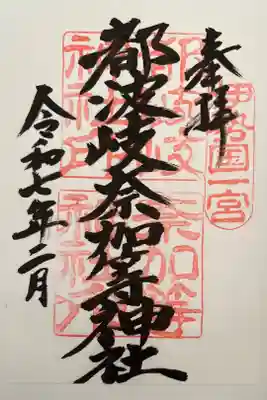 奉拝
伊勢国一宮
都波岐奈加等神社
令和七年二月